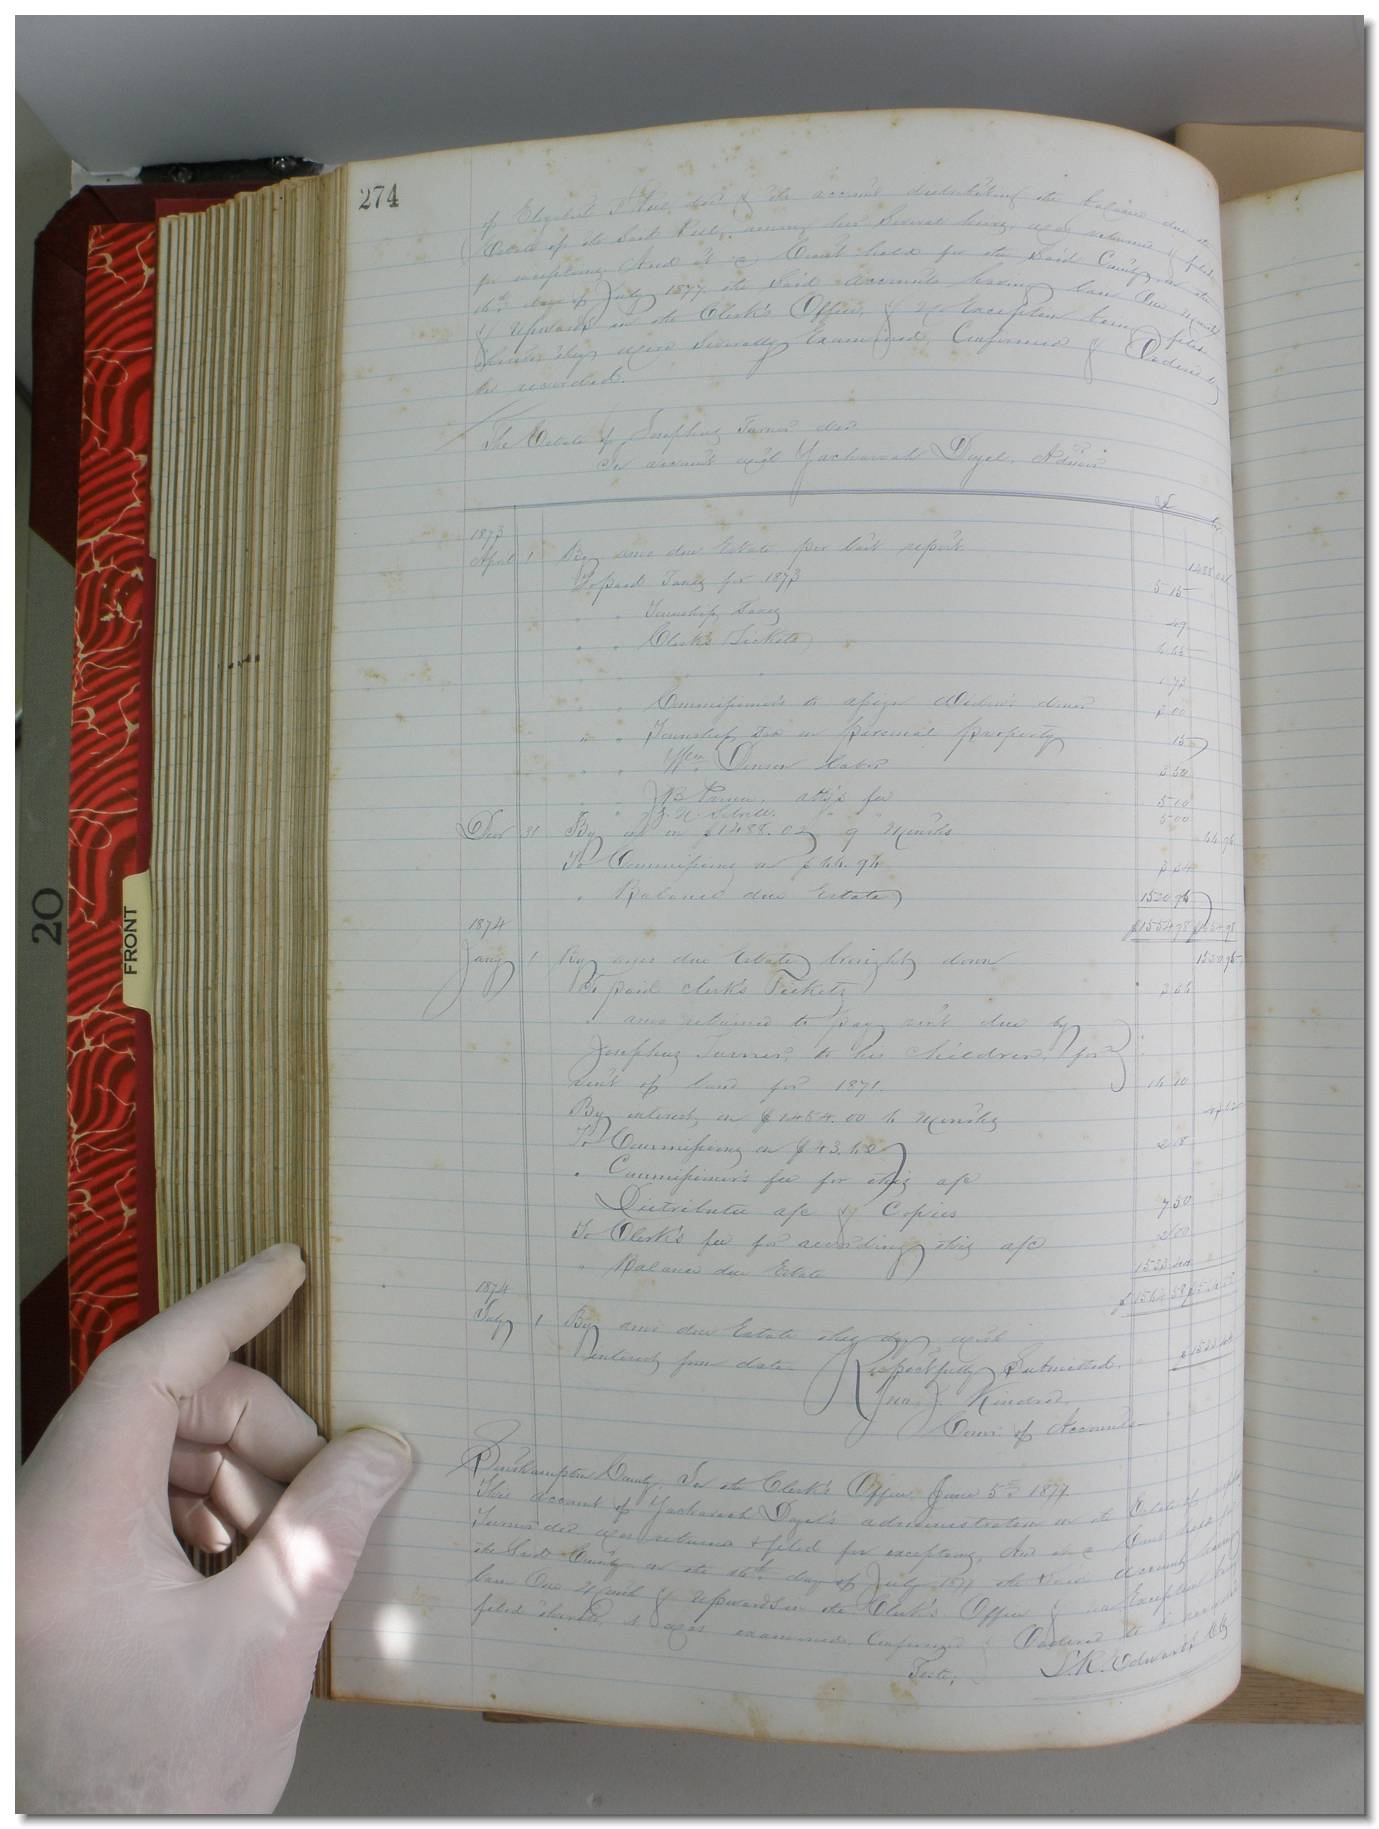 274
of Elizabeth P Peel, decd & the account distributing the balance due the
Estate of the said Peel, among her several heirs, was returned & filed
for exceptions, And at a Court held for the Said County on the
16th day of July 1877 the Said accounts having lain One Month
& Upwards in the Clerk's Office, & no Exception being filed
thereto they were Severally Examined, Confirmed & Ordered to
be recorded.
The Estate of Josephus Turner decd
In account with Zachariah Doyel, Admor
$
1873
April 1 By amo due Estate per last report 1488 02
To paid Taxes for 1873 5 15
" " Township Taxes 49
" " Clerk's Tickets
1 73
" " Commissioner's to assign Widow's dower 3 00
" " Township Tax on personal property 15
" " Wm labor 3 50
" " attys fee 5 00
5 00
Decr 31 By int on $1488.02 9 Months 66 96
To Commissions on $66.96 3 34
" Balance due Estate 1520 96
1874 $1554 98
Jany 1 By amo due Estate brought down 1520 96
To paid Clerk's Tickets
" amo returned to pay rent due by
Josephus Turner, to his children, for
rent of land for 1871. 16 10
By interest on $1454.00 6 Months 43 62
To Commissions on $43.62 2 18
" Commissioner's fee for this a/c
Distributive a/c & Copies 7 50
To Clerk's fee for recording this a/c 2 00
" Balance due Estate
1874
July 1 By amo due Estate this day with
interest from date
Respectfully Submitted.
Jno. J. Kindred,
Comr of Accounts
Southampton County, In the Clerk's Office, June 5th 1877
This account of Zachariah Doyel's administration on the Estate of Josephus
Turner decd was returned & filed for exceptions, And at a Court held for
the Said County on the 16th day of July 1877 the Said account having
lain One Month & Upwards in the Clerk's Office & no Exception being
filed thereto, it was examined, Confirmed & Ordered to be recorded
Teste, L. R. Edwards Clk
20
FRONT